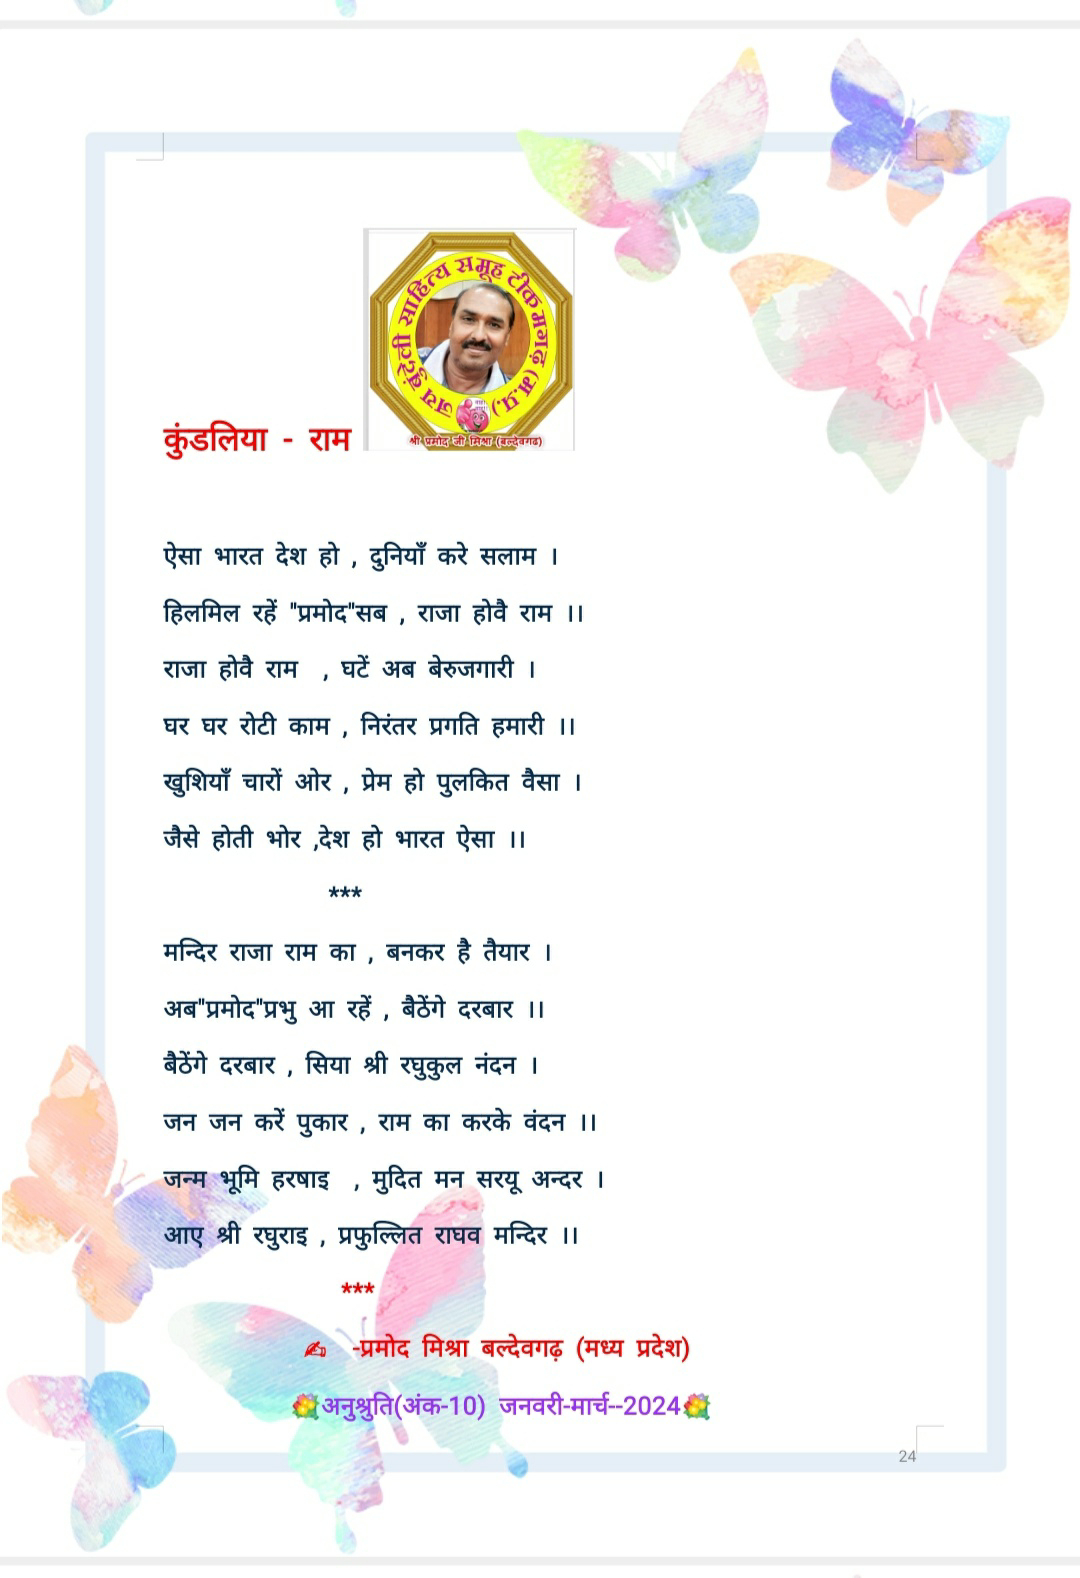 जय बुंदेली साहित्य समूह टीकमगढ़ (म.प्र.)
श्री प्रमोद जी मिश्रा (बल्देवगढ़)
कुंडलिया - राम
ऐसा भारत देश हो , दुनियाँ करे सलाम ।
हिलमिल रहें "प्रमोद"सब , राजा होवै राम ।।
राजा होवै राम , घटें अब बेरुजगारी ।
घर घर रोटी काम , निरंतर प्रगति हमारी ।।
खुशियाँ चारों ओर , प्रेम हो पुलकित वैसा ।
जैसे होती भोर ,देश हो भारत ऐसा ।।
***
मन्दिर राजा राम का , बनकर है तैयार ।
अब"प्रमोद"प्रभु आ रहें , बैठेंगे दरबार ।।
बैठेंगे दरबार , सिया श्री रघुकुल नंदन ।
जन जन करें पुकार , राम का करके वंदन ।।
जन्म भूमि हरषाइ , मुदित मन सरयू अन्दर ।
आए श्री रघुराइ , प्रफुल्लित राघव मन्दिर ।।
***
✍ -प्रमोद मिश्रा बल्देवगढ़ (मध्य प्रदेश)
💐अनुश्रुति(अंक-10) जनवरी-मार्च--2024💐
24